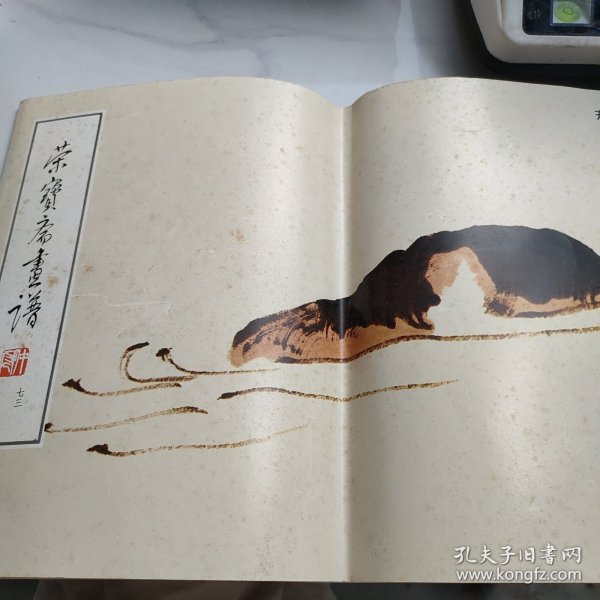 荣寶斋畫谱
七三
孔夫子旧書网
www.kongfz.com